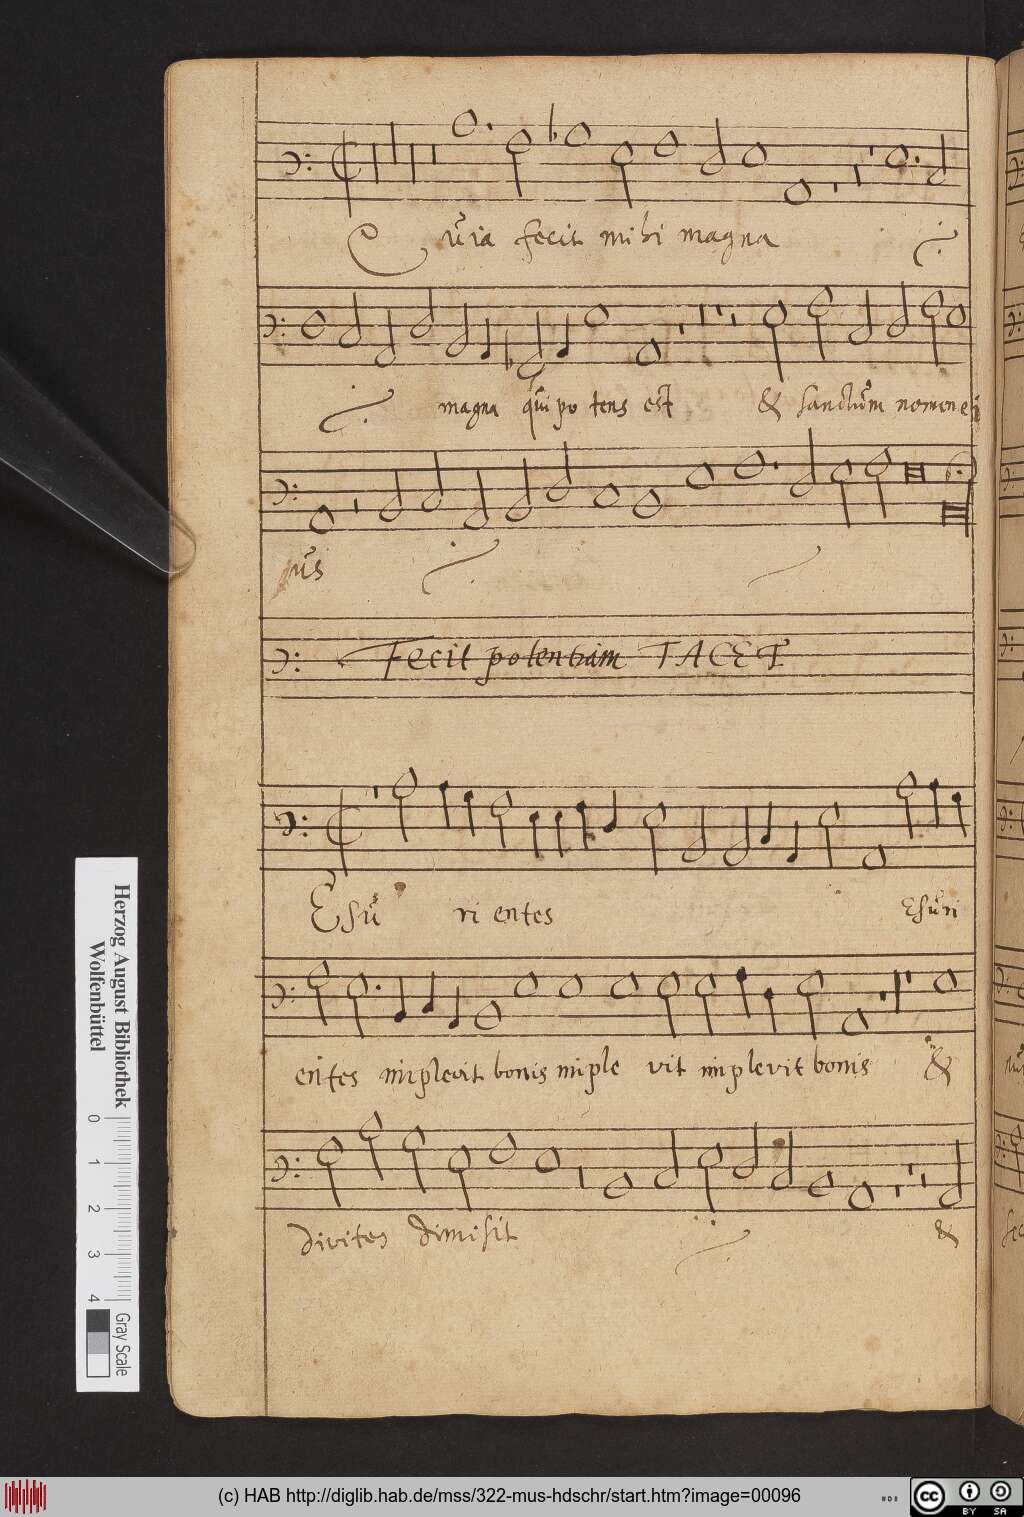 Quia fecit mihi magna
magna qui potens est & sanctum nomen ei
us
Fecit potentiam TACET
Esu ri entes Esuri
entes implevit bonis imple vit implevit bonis &
divites dimisit &
Herzog August Bibliothek
Wolfenbüttel
0 1 2 3 4
Gray Scale
(c) HAB http://diglib.hab.de/mss/322-mus-hdschr/start.htm?image=00096
cc BY SA